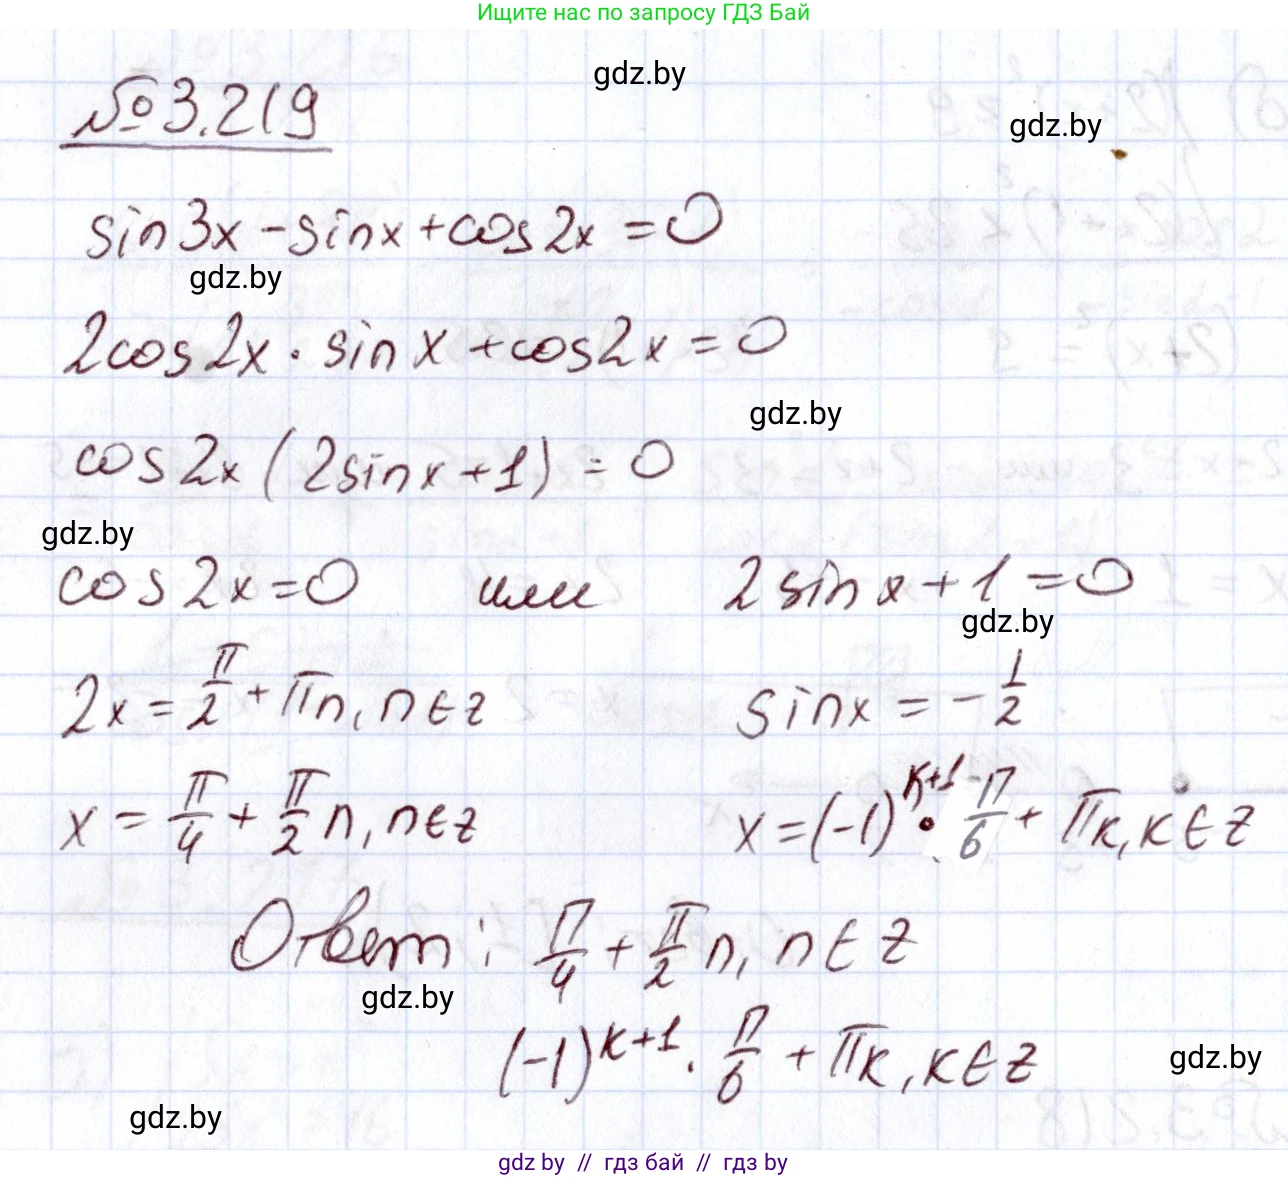 Ищите нас по запросу ГДЗ Бай
gdz.by
№3.219
gdz.by
sin3x - sinx + cos2x = 0
gdz.by
2cos2x · sin x + cos2x = 0
gdz.by
cos2x (2sinx + 1) = 0
gdz.by
cos2x = 0 или 2sinx + 1 = 0
gdz.by
2x = π/2 + πn, n ∈ z sinx = - 1/2
x = π/4 + π/2 n, n ∈ z x = (-1)^(k+1) · π/6 + πk, k ∈ z
Ответ: π/4 + π/2 n, n ∈ z
gdz.by
(-1)^(k+1) · π/6 + πk, k ∈ z
gdz.by
gdz.by
gdz by // гдз бай // гдз by